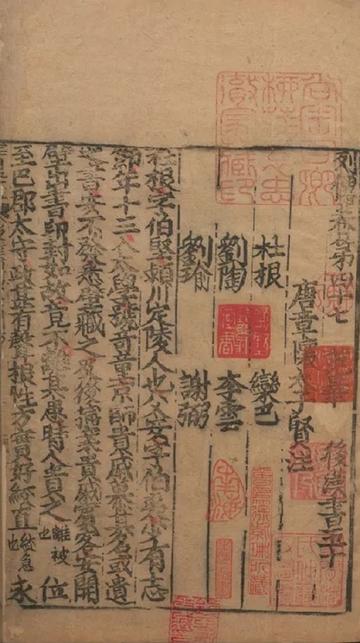 列傳卷第四十七 范曄 後漢書五十
唐章懷太子賢注
杜根 欒巴
劉陶 李雲
劉瑜 謝弼
杜根字伯堅潁川定陵人也父安字伯夷少有志
節年十三入太學號奇童京師貴戚慕其名或遺
之書安不發悉壁藏之及後捕案貴戚賓客安開
壁出書印封如故竟不離其患時人貴之離被也位
至巴郡太守政甚有聲根性方實好絞直絞急也永